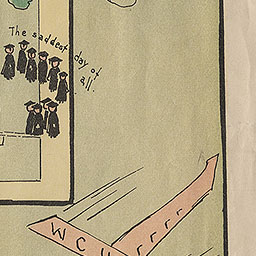 The saddest day of all.
W C U